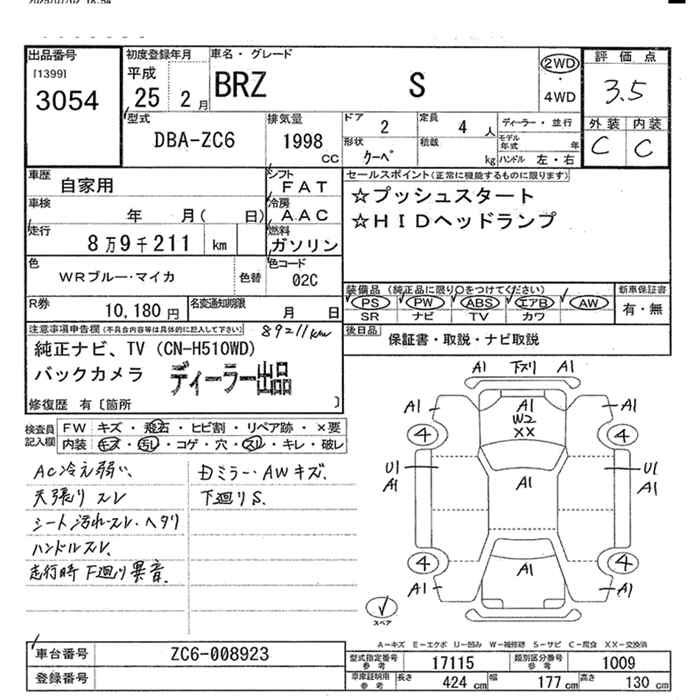 出品番号
[1399]
3054
初度登録年月
平成
25 2 月
車名・グレード
BRZ S
2WD
・
4WD
評価点
3.5
外装 内装
C C
型式
DBA-ZC6
排気量
1998
CC
ドア
2
定員
4 人
ディーラー・並行
モデル年式 年
形状
クーペ
積載
kg
ハンドル 左・右
車歴
自家用
シフト
FAT
車検
年 月( 日)
冷房
AAC
走行
8万9千211 km
燃料
ガソリン
色
WRブルー・マイカ
色替
色コード
02C
R券
10,180 円
名変通知期限
月 日
セールスポイント(正常に機能するものに限ります)
☆プッシュスタート
☆HIDヘッドランプ
装備品 (純正品に限り○をつけてください)
PS PW ABS エアB AW
SR ナビ TV カワ
新車保証書
有・無
後日品
保証書・取説・ナビ取説
注意事項申告欄(不具合内容等は具体的に記入して下さい)
89211km
純正ナビ、TV (CN-H510WD)
バックカメラ
ディーラー出品
修復歴 有〔箇所 〕
検査員記入欄
FW キズ・飛石・ヒビ割・リペア跡・×要
内装 キズ・汚れ・コゲ・穴・スレ・キレ・破レ
AC冷え弱い、
天張り スレ
シート汚れ・スレ・ヘタリ
ハンドルスレ、
走行時 下廻り異音、
ミラー・AWキズ、
下廻りS、
A1 下スリ A1
A1 A1 A1
W2
XX
4 4
U1 U1
A1 A1 A1
4 4
A1 A1 A1
スペア
A-キズ E-エクボ U-凹み W-補修跡 S-サビ C-腐食 XX-交換済
車台番号
ZC6-008923
登録番号
型式指定番号
参考
17115
類別区分番号
参考
1009
車庫証明用
参考
長さ 424 cm
幅 177 cm
高さ 130 cm